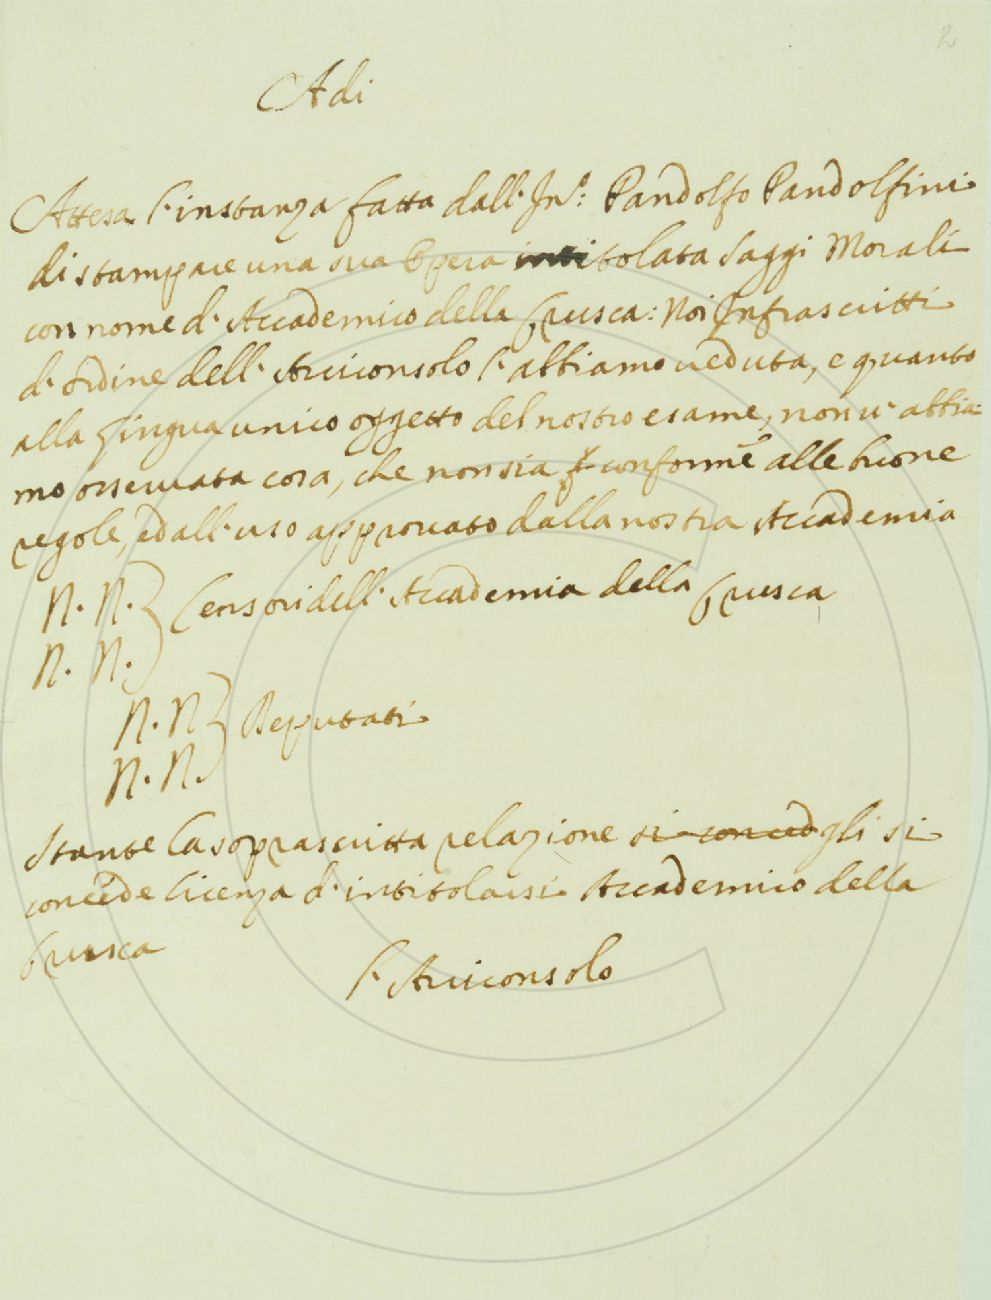 2
Adi
Attesa l'instanza fatta dall' Inn.o Pandolfo Pandolfini
di stampare una sua Opera intitolata Saggi Morali
con nome d' Accademico della Crusca: Noi Infrascritti
d' ordine dell' Arciconsolo l' abbiamo veduta, e quanto
alla lingua unico oggetto del nostro esame, non v' abbia-
mo osservata cosa, che non sia conforme alle buone
regole, ed all' uso approvato dalla nostra Accademia
N. N. } Censori dell' Accademia della Crusca
N. N.
N. N } Deputati
N. N.
Stante la soprascritta relazione si conced gli si
concede licenza d' intitolarsi Accademico della
Crusca
L' Arciconsolo